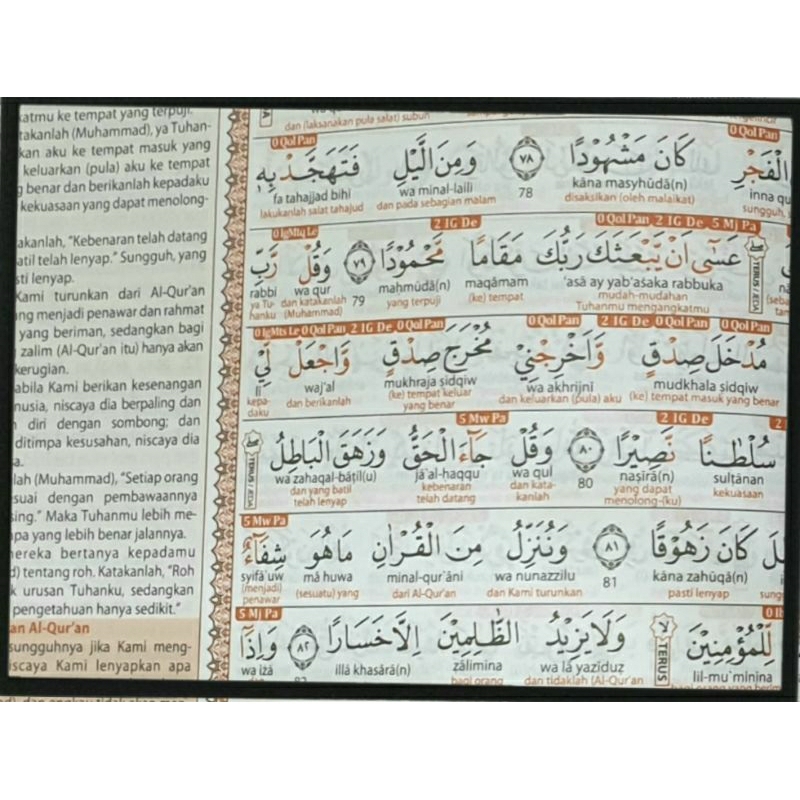 atmu ke tempat yang terpuji.
takanlah (Muhammad), ya Tuhan-
kan aku ke tempat masuk yang
keluarkan (pula) aku ke tempat
g benar dan berikanlah kepadaku
kekuasaan yang dapat menolong-
akanlah, "Kebenaran telah datang
atil telah lenyap." Sungguh, yang
sti lenyap.
Kami turunkan dari Al-Qur'an
ng menjadi penawar dan rahmat
yang beriman, sedangkan bagi
zalim (Al-Qur'an itu) hanya akan
kerugian.
abila Kami berikan kesenangan
nusia, niscaya dia berpaling dan
diri dengan sombong; dan
ditimpa kesusahan, niscaya dia
a.
lah (Muhammad), "Setiap orang
suai dengan pembawaannya
sing." Maka Tuhanmu lebih me-
apa yang lebih benar jalannya.
ereka bertanya kepadamu
) tentang roh. Katakanlah, "Roh
k urusan Tuhanku, sedangkan
pengetahuan hanya sedikit."
an Al-Qur'an
sungguhnya jika Kami meng-
iscaya Kami lenyapkan apa
dan (laksanakan pula salat) subuh
0 Qol Pan 0 Qol Pan
الْفَجْرِ كَانَ مَشْهُوْدًا ٧٨ وَمِنَ الَّيْلِ فَتَهَجَّدْ بِهٖ
fa tahajjad bihī wa minal-laili 78 kāna masyhūdā(n) inna qu
lakukanlah salat tahajud dan pada sebagian malam disaksikan (oleh malaikat) sungguh, s
0 IgMtq Le 2 IG De 0 Qol Pan 2 IG De 5 Mj Pa
عَسٰٓى اَنْ يَّبْعَثَكَ رَبُّكَ مَقَامًا مَّحْمُوْدًا ٧٩ وَقُلْ رَّبِّ
rabbi wa qur 79 maḥmūdā(n) maqāmam 'asā ay yab'aṡaka rabbuka
ya Tu- dan katakanlah yang terpuji (ke) tempat mudah-mudahan
hanku (Muhammad) Tuhanmu mengangkatmu
TERUS / JEDA
0 IgMts Le 0 Qol Pan 2 IG De 0 Qol Pan 0 Qol Pan 2 IG De 0 Qol Pan 0 Qol Pan
مُدْخَلَ صِدْقٍ وَّاَخْرِجْنِيْ مُخْرَجَ صِدْقٍ وَّاجْعَلْ لِّيْ
lī waj'al mukhraja ṣidqiw wa akhrijnī mudkhala ṣidqiw
kepa- dan berikanlah (ke) tempat keluar dan keluarkan (pula) aku (ke) tempat masuk yang benar
daku yang benar
5 Mw Pa 2 IG De 2
سُلْطٰنًا نَّصِيْرًا ٨٠ وَقُلْ جَاۤءَ الْحَقُّ وَزَهَقَ الْبَاطِلُ
TERUS / JEDA
wa zahaqal-bāṭil(u) jā'al-ḥaqqu wa qul 80 naṣīrā(n) sulṭānan
dan yang batil kebenaran dan kata- yang dapat kekuasaan
telah lenyap telah datang kanlah menolong-(ku)
5 Mw Pa
كَانَ زَهُوْقًا ٨١ وَنُنَزِّلُ مِنَ الْقُرْاٰنِ مَا هُوَ شِفَاۤءٌ
syifā'uw mā huwa minal-qur'āni wa nunazzilu 81 kāna zahūqā(n)
(menjadi) (sesuatu) yang dari Al-Qur'an dan Kami turunkan pasti lenyap
penawar
5 Mj Pa
لِّلْمُؤْمِنِيْنَ وَلَا يَزِيْدُ الظّٰلِمِيْنَ اِلَّا خَسَارًا ٨٢ وَاِذَآ
TERUS
wa iżā illā khasārā(n) ẓālimīna wa lā yazīduẓ lil-mu'minīna
bagi orang dan tidaklah (Al-Qur'an